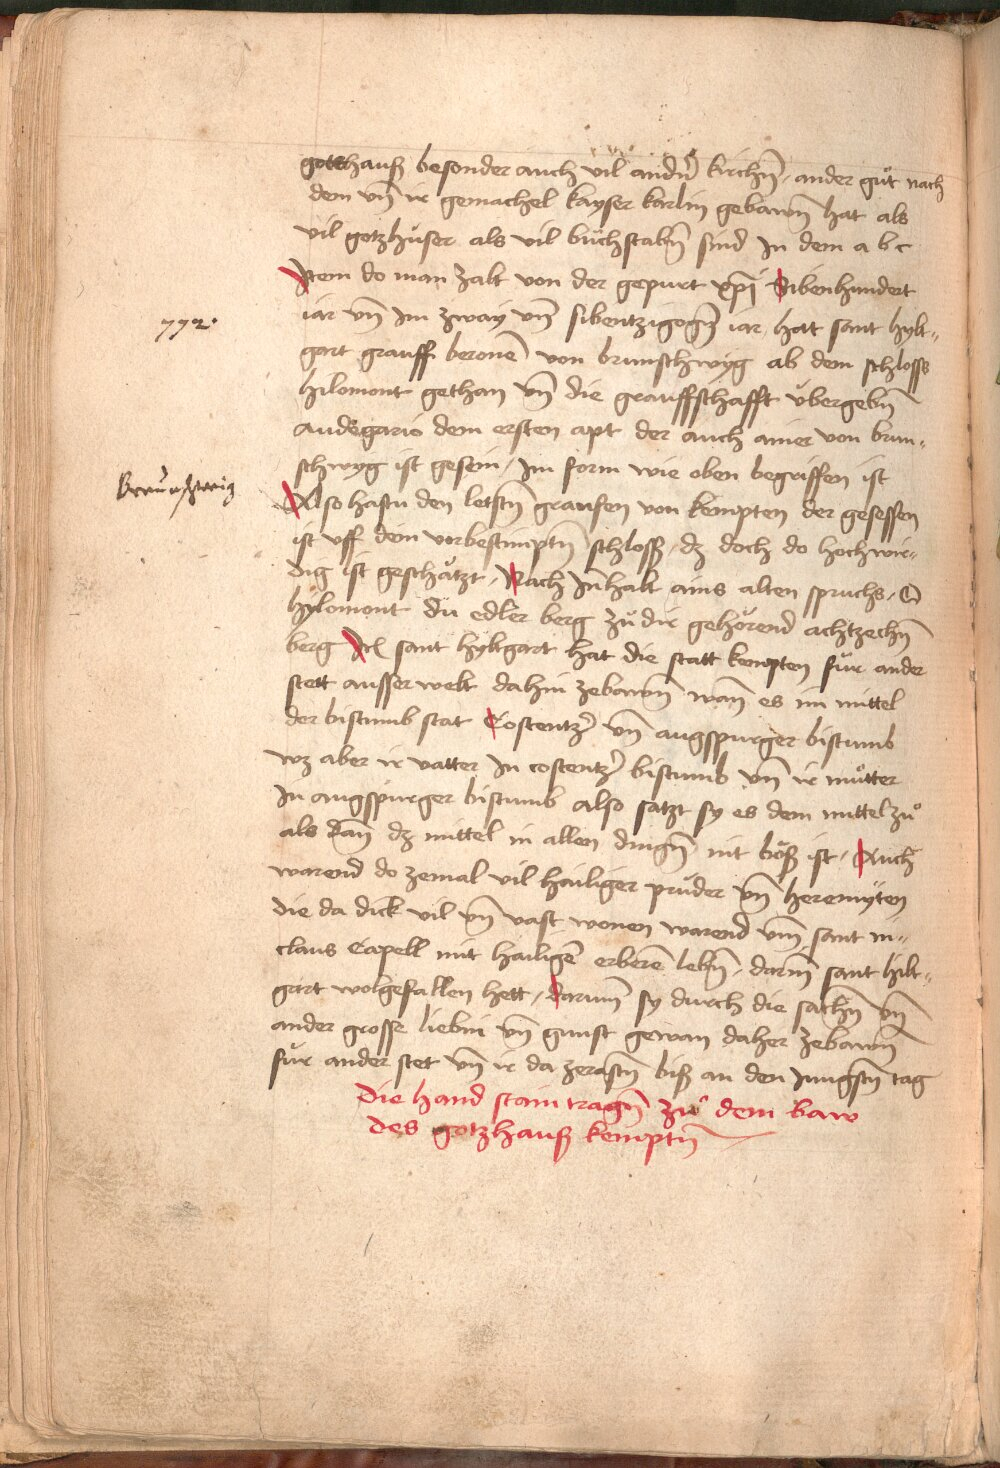 gotthauß besonder auch vil andr̄ kirchn̄, ander gůt nach
dem vn̄ ir gemachel kayser karlin gebawn̄ hat als
vil gotzhüser als vil bůchstabn̄ sind In dem a b c
Item do man zalt von der gepurt xp̄i Sibenhundert
772.
iar vn̄ Im zway vn̄ sibentzigogn̄ iar, hatt sant hylt-
gart grauff beronē von brunschwyg ab dem schloss
hilomont gethan vn̄ die grauffschafft v̈bergebn̄
andegario dem ersten apt der auch ainer von brun-
schwyg ist gesein, Im form wie oben begriffen ist
Braunschweig
Also hastu den letstn̄ graufen von kempten der gesessen
ist vff dem vorbestimptn̄ schloss, dz doch do hochwir-
dig ist geschätzt, Nach Inhalt ains alten spruchs, O
hylomont du edler berg zů dir gehörend achtzechn̄
berg Itē sant hyltgart hat die statt kempten für ander
stett ausserwelt dahin zebawn̄ wan̄ es im mittel
der bistumb stat Costentzr̄ vn̄ augspurger bistumb
wz aber ir vatter In costentzr̄ bistumb vn̄ ir můtter
In augspurger bistumb also satzt sy es dem mittel zů
als dan̄ dz mittel in allen dingn̄ nit böß ist, Auch
warend do zemal vil hailiger prüder vn̄ heremyten
die da dick vil vn̄ vast wonen warend vm̄ sant ni-
claus Capell mit hailigē erberē lebn̄, darin̄ sant hilt-
gart wolgefallen hett, darum̄ sy durch die sachn̄ vn̄
ander grosse liebin vn̄ gunst gewan daher zebawn̄
für ander stet vn̄ ir da zerastn̄ biß an den Jungstn̄ tag
die hand stain tragn̄ zů dem baw
des gotzhauß kemptn̄